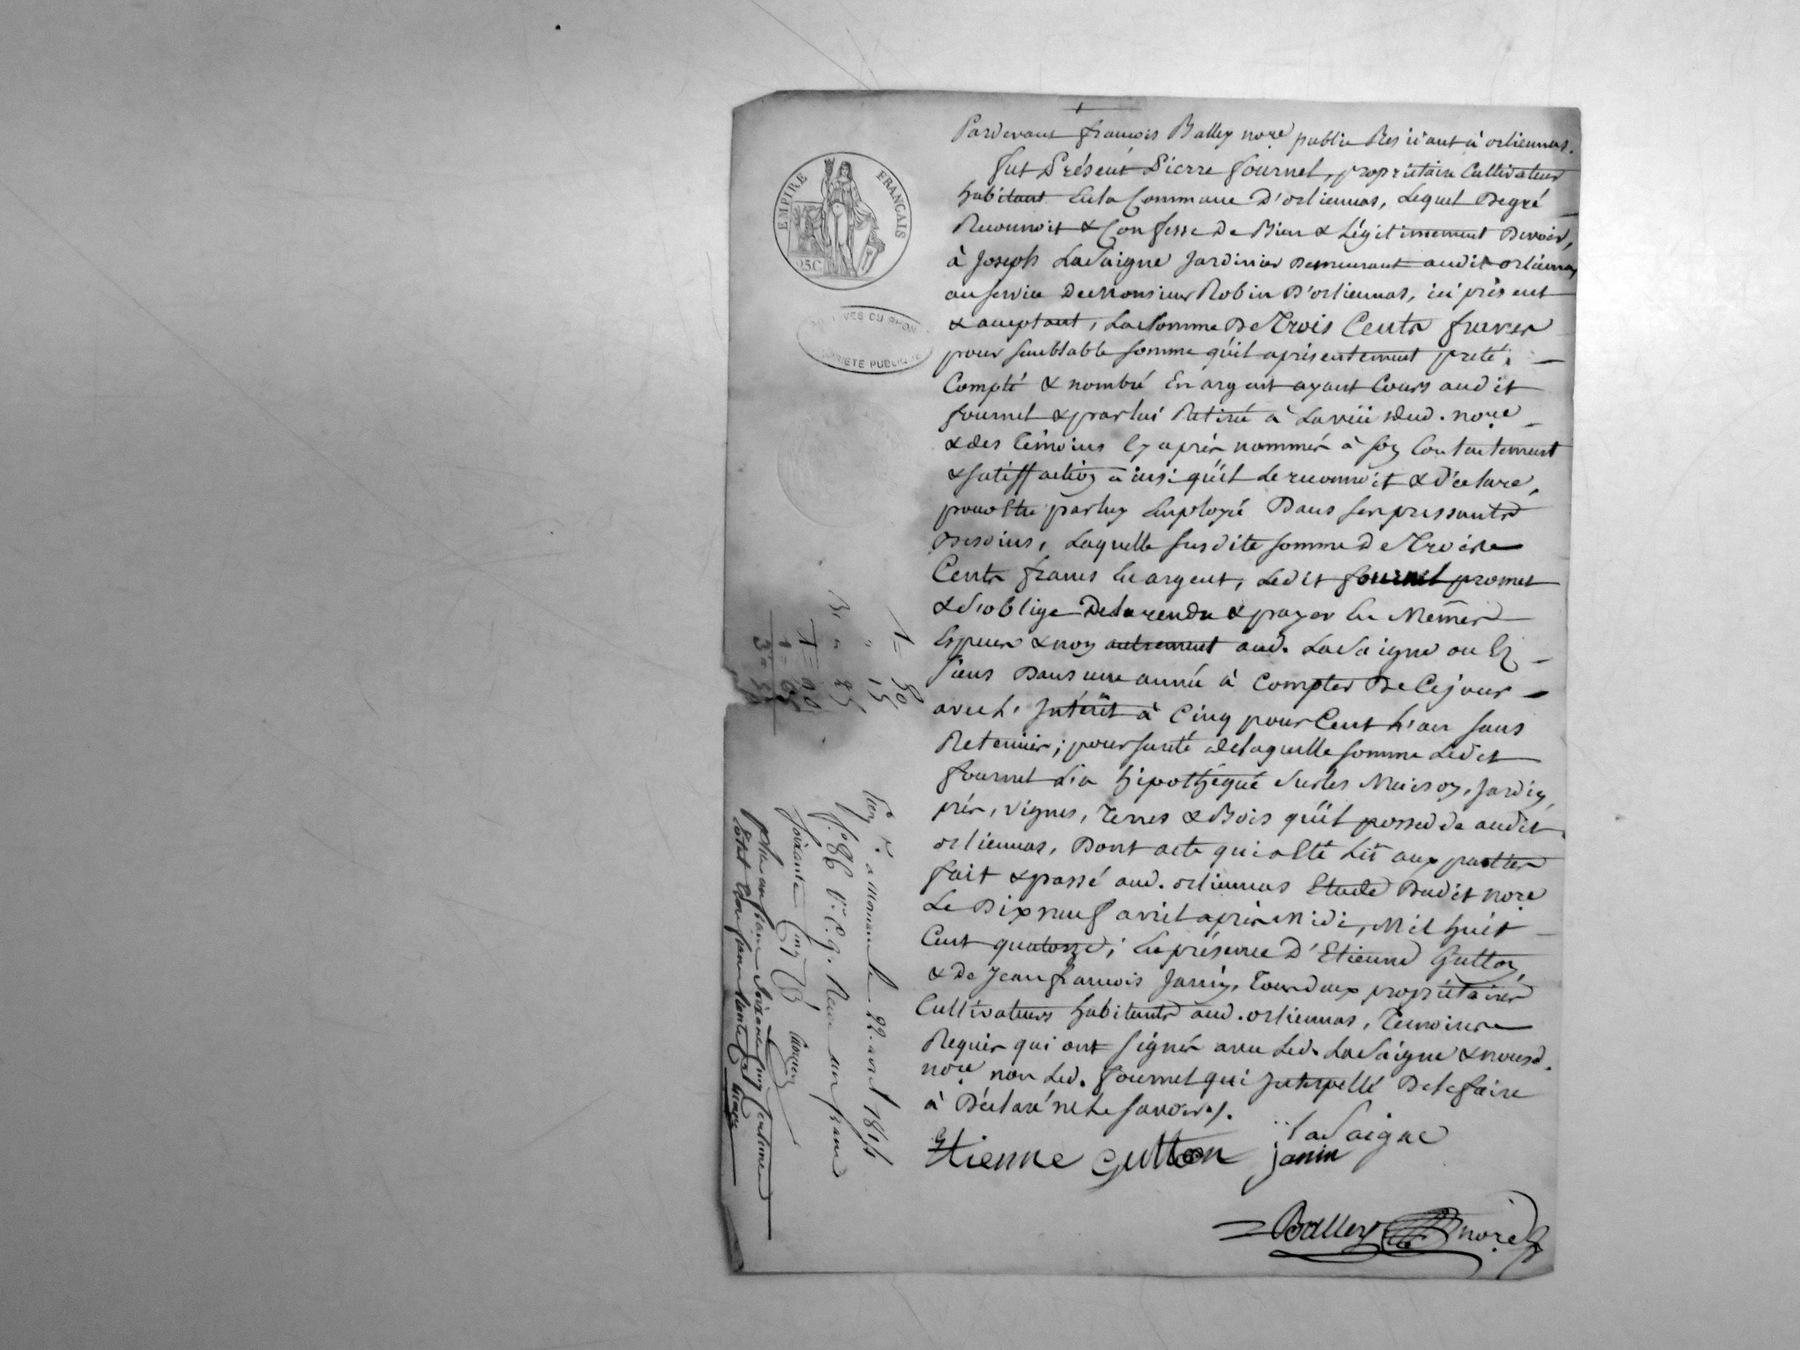 Pardevant françois Balley nore public Residant à orliennas.
fut Présent Pierre fournel, propriétaire Cultivateur
habitant En la Commune D'orliennas, Lequel Degré
Reconnoit & Confesse De Bien & Légitimement Devoir,
à Joseph LaSaigne Jardinier Demeurant audit orliennas
au service De Monsieur Robin D'orliennas, ici présent
& acceptant, La somme De Trois Cents francs
pour semblable somme qu'il a présentement prêté,
Compté & nombré En argent ayant Cours audit
fournel & par lui Retiré à La vüe dud. nore
& des témoins Cy après nommés à son Contentement
& satisfaction ainsi qu'il Le reconnoit & Déclare,
pour Etre par luy Employé Dans ses pressants
Besoins, Laquelle susdite somme De Trois
Cents francs En argent, Ledit fournel promet
& s'oblige De la rendre & payer En Mêmes
Especes & non autrement aud. LaSaigne ou Es
siens Dans une année à Compter De Ce jour
avec L'Intérêt à Cinq pour Cent L'an sans
Retenue; pour sureté de laquelle somme Ledit
fournel L'a hipothéqué sur les Maison, Jardin,
prés, vignes, Terres & Bois qu'il possede audit
orliennas, Dont acte qui a Eté Lû aux parties
fait & passé aud. orliennas Etude Dudit nore
Le Dix neuf avril après Midi, Mil huit
Cent quatorze; En présence D'Etienne Gutton,
& De Jean françois Janin, Tous Deux propriétaires
Cultivateurs habitants aud. orliennas, Temoins
Requis qui ont signés avec Led. LaSaigne & nousd.
nore non Led. fournel qui Interpellé De le faire
à Déclaré ne Le savoir.
LaSaigne
Etienne gutton janin
Balley nore
EMPIRE FRANÇAIS
25C
ARCHIVES DU RHONE
PROPRIETE PUBLIQUE
1 = 50
" 15
Enr. à Mornant le 22. avril 1814
f° 86 V° C. 9. Reçu un franc
soixante Cinq
plus un franc soixante Cinq Centimes